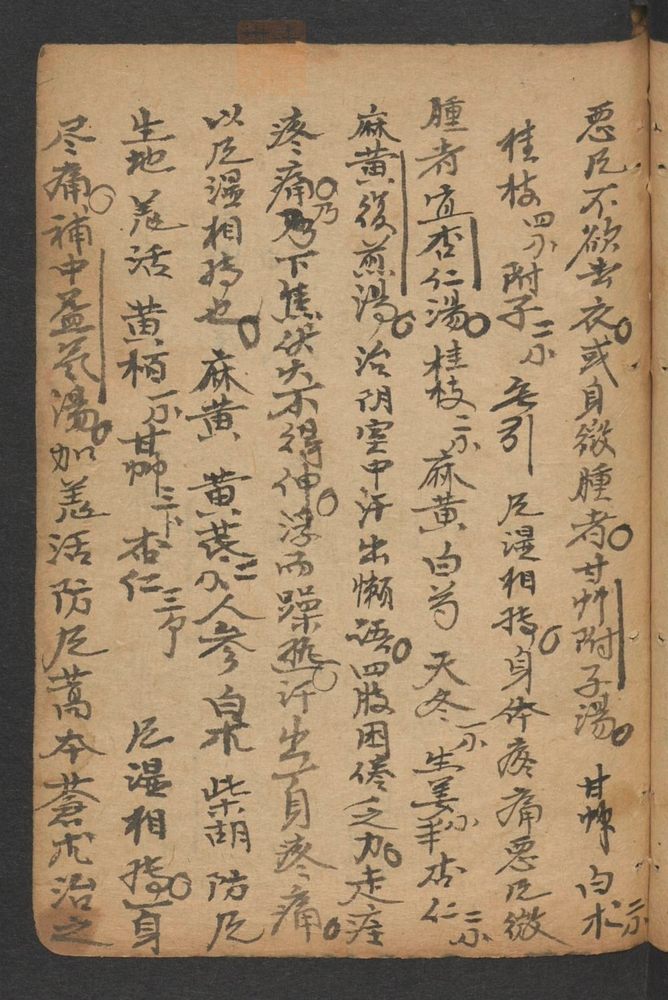 恶风不欲去衣或身微腫者甘艸附子湯 甘艸 白术二分
桂枝四分附子二分 无引 风湿相搏身体疼痛恶风微
腫者宜杏仁湯桂枝二分麻黄白芍天冬一分生姜半分杏仁二分
麻黄復煎湯治阴室中汗出懒语四肢困倦乏力走疰
疼痛乃下焦伏火不得伸浮而躁熱汗出一身疼痛
以风湿相搏也麻黄 黄芪二分人参 白术 柴胡 防风
生地 羌活 黄栢一分甘艸三下杏仁三个 风湿相搏一身
尽痛補中益气湯加羌活防风藁本蒼朮治之